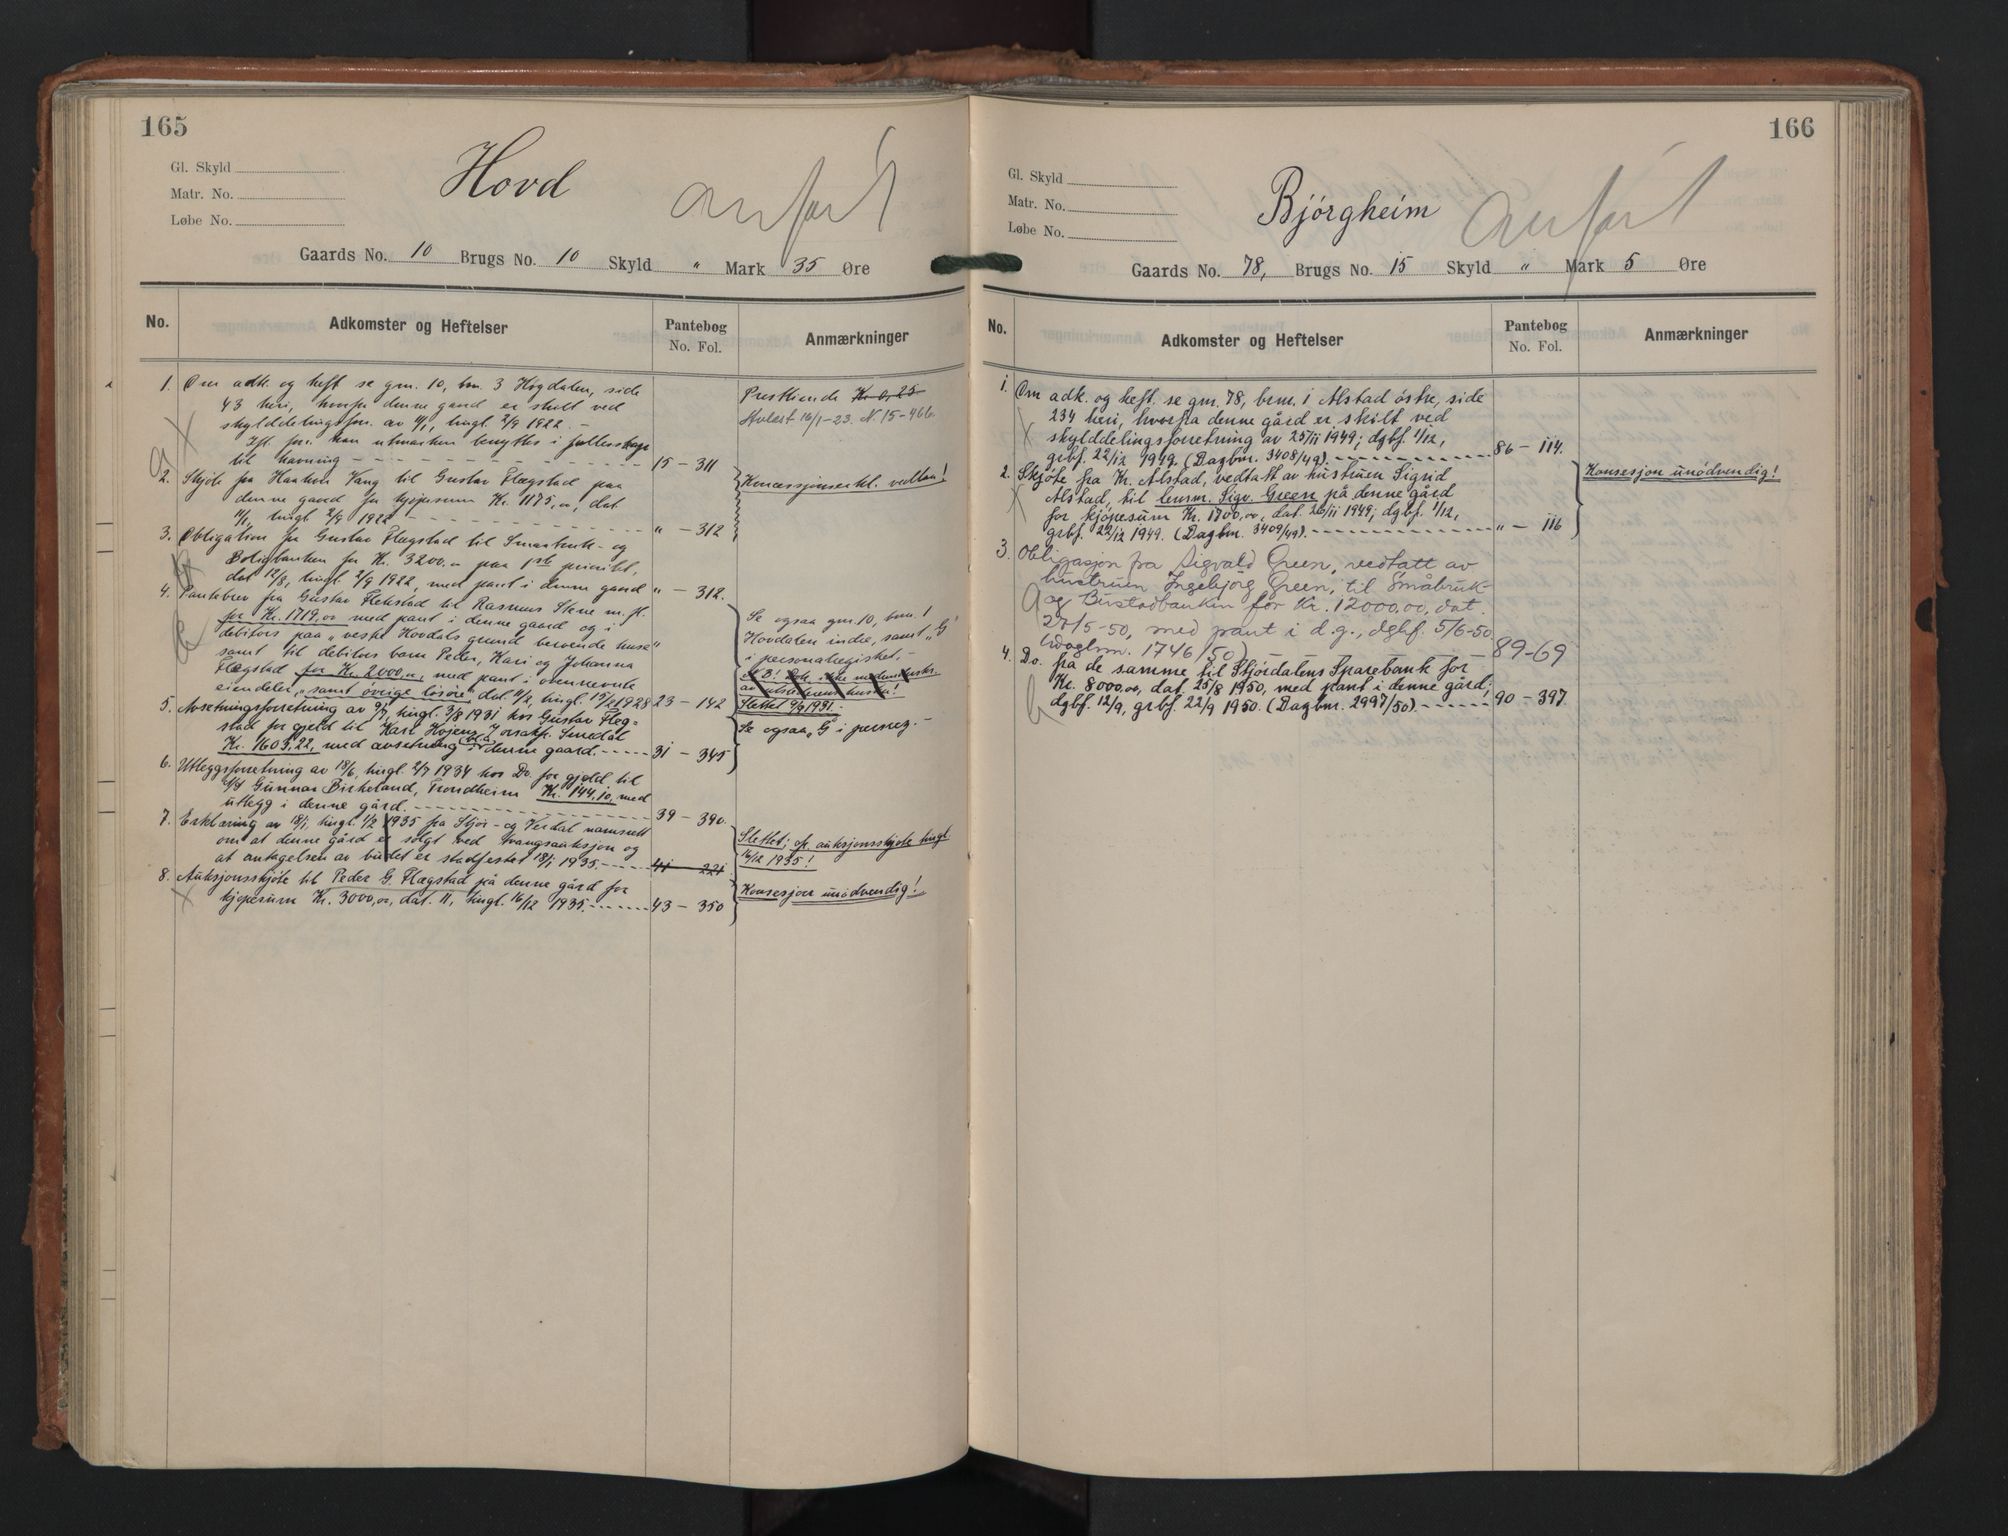 165
Gl. Skyld
Matr. No.
Løbe No.
Hovd
Anført
Gaards No. 10 Brugs No. 10 Skyld " Mark 35 Øre
No.
Adkomster og Heftelser
Pantebog
No. Fol.
Anmærkninger
1. Om adk. og heft se gnr. 10, bnr. 3 Høgdalen, side
43 heri, hvorfra denne gaard er skilt ved
skylddelingsforr. av 11/1, tingl. 2/9 1922. -
Ifl. forr. kan utmarken benyttes i fællesskap
til havning - 15 - 311
Presttiende Kr. 0,25
Avløst 16/1-23. N. 15-466
a
2. Skjøte fra Haakon Vang til Gustav Flægstad paa
denne gaard for kjøpesum Kr. 1175,00, dat
11/1, tingl. 2/9 1922 - " - 312
Koncessjonserkl. vedtan!
3. Obligation fra Gustav Flægstad til Smaabruk- og
Boligbanken for Kr. 3200.00 paa 1ste prioritet,
dat 12/8, tingl. 2/9 1922, med pant i denne gaard " - 312.
4. Pantebrev fra Gustav Flekstad til Rasmus Stene m. fl.
for Kr. 1719,00 med pant i denne gaard og i
debitors paa "vestre Hovdals grund beroende huse"
samt til debitors barn Peder, Kari og Johanna
Flægstad for Kr. 2000,00, med pant i ovennevnte
eiendeler, "samt øvrige løsøre" dat 11/2, tingl. 15/2 1928 23 - 142
Se ogsaa gnr. 10, bnr. 1
Hovdalen indre, samt "G"
i personalregistret. -
Slettet 9/9 1931. -
5. Avsetningsforretning av 9/7, tingl. 3/8 1931 hos Gustav Flæg-
stad for gjeld til Karl Højens Forsatsf. Smedal
Kr. 1603.22, med avsetning bl.a. i denne gaard. - 31 - 345
Se ogsaa "G" i persreg. -
6. Utleggsforretning av 18/6, tingl. 2/7 1934 hos Do. for gjeld til
A/S Gunnar Birkeland, Trondheim Kr. 144,10, med
utlegg i denne gård. - 39 - 390.
7. Erklæring av 18/1, tingl. 1/2 1935 fra Stjør- og Verdal namsrett
om at denne gård er solgt ved tvangsauksjon og
at antagelsen av budet er stadfestet 18/1 1935. - 41 - 221.
Slettet; cfr. auksjonsskjøte tingl.
16/12 1935!
8. Auksjonsskjøte til Peder G. Flægstad på denne gård for
kjøpesum Kr. 3000,00, dat. 11, tingl. 16/12 1935. - 43 - 350
Konsesjon unødvendig!
166
Gl. Skyld
Matr. No.
Løbe No.
Bjørgheim
Anført
Gaards No. 78, Brugs No. 15 Skyld " Mark 5 Øre
No.
Adkomster og Heftelser
Pantebog
No. Fol.
Anmærkninger
1. Om adk. og heft. se gnr. 78, bnr. 1 Alstad østre, side
234 heri, hvorfra denne gård er skilt ved
skylddelingsforretning av 25/11 1949; dgbf. 1/12,
grbf. 22/12 1949. (Dagbnr. 3408/49). - 86 - 114.
2. Skjøte fra Kr. Alstad, vedtatt av hustruen Sigrid
Alstad, til lensm. Sigv. Green på denne gård
for kjøpesum Kr. 1700,00, dat. 26/11 1949; dgbf. 1/12,
grbf. 22/12 1949. (Dagbnr. 3409/49). - " - 116
Konsesjon unødvendig!
3. Obligasjon fra Sigvald Green, vedtatt av
hustruen Ingebjørg Green, til Småbruk-
og Bustadbanken for Kr. 12000,00, dat.
27/5-50, med pant i d.g., dgbf. 5/6-50
(Dagbnr. 1746/50) - 89-69
a
4. Do. fra de samme til Stjørdalens Sparebank for
Kr. 8000,00, dat. 25/8 1950, med pant i denne gård;
dgbf. 12/9, grbf. 22/9 1950. (Dagbnr. 2997/50). - 90 - 397.
b